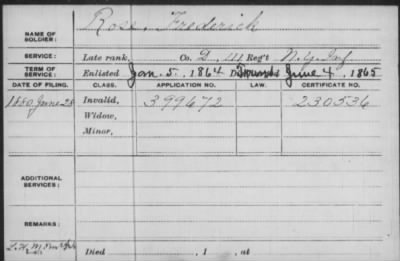 NAME OF SOLDIER: Rose, Frederick
SERVICE: Late rank, Co. D, 111 Reg't N.Y. Inf
TERM OF SERVICE: Enlisted Jan. 5, 1864 June 4, 1865
DATE OF FILING. CLASS. APPLICATION NO. LAW. CERTIFICATE NO.
1880 June 28 Invalid, 399672 230536
Widow,
Minor,
ADDITIONAL SERVICES:
REMARKS:
Died , 1 , at